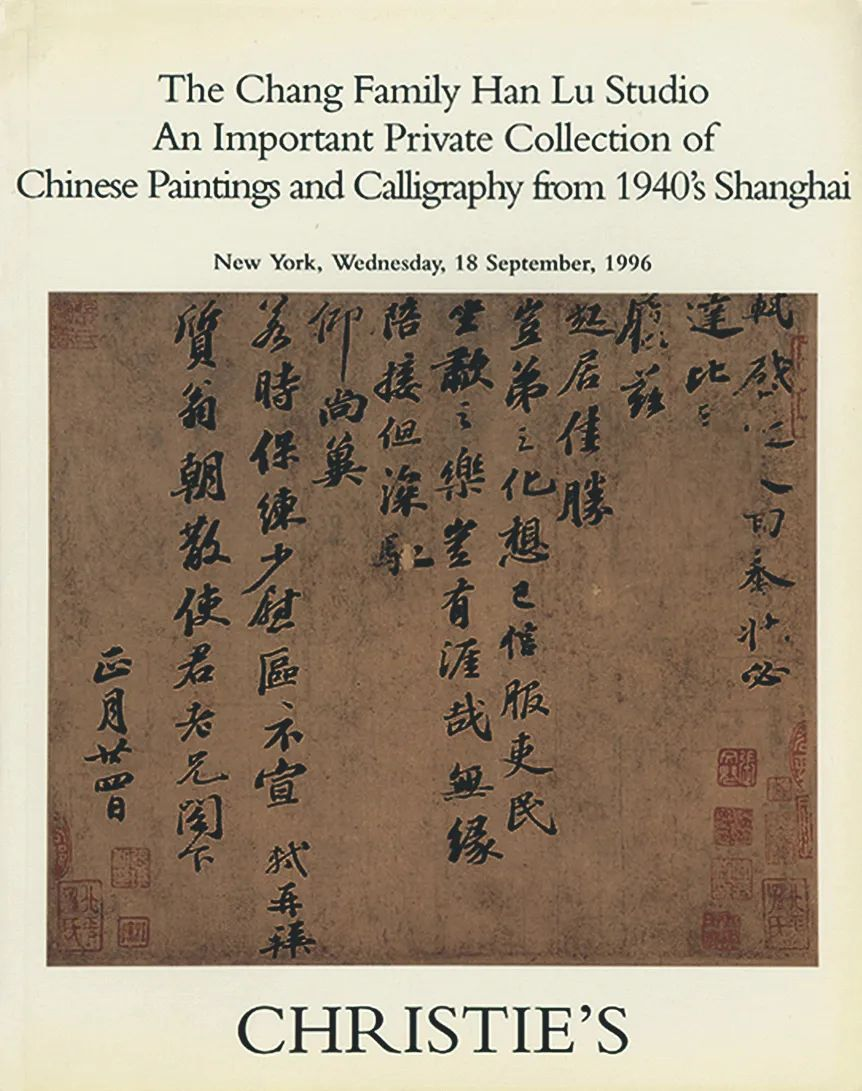 The Chang Family Han Lu Studio
An Important Private Collection of
Chinese Paintings and Calligraphy from 1940's Shanghai
New York, Wednesday, 18 September, 1996
軾啟近人回奉狀必
達比
履茲
起居佳勝
豈弟之化想已信服吏民
坐歗之樂豈有涯哉無緣
陪接但深馳
仰尚冀
若時保練少慰區不宣 軾再拜
質翁朝散使君老兄閣下
正月廿四日
CHRISTIE'S